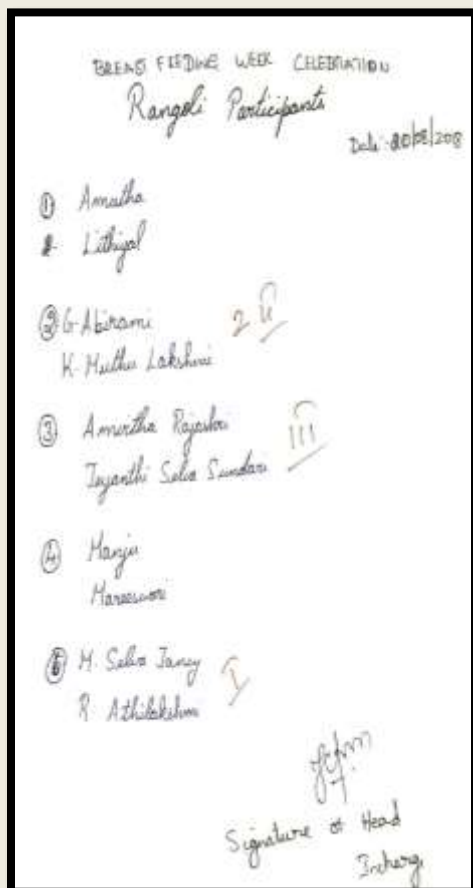 BREAST FEEDING WEEK CELEBRATION
Rangoli Participants
Date:
① Amutha
Lithiyal
② G. Abirami 2 II
K. Muthu Lakshmi
③ Amirtha Rajashri III
Jeyanthi Selva Sundari
④ Manju
Mareeswari
⑤ M. Selva Jancy I
R. Athilakshmi
Signature of Head
Incharge